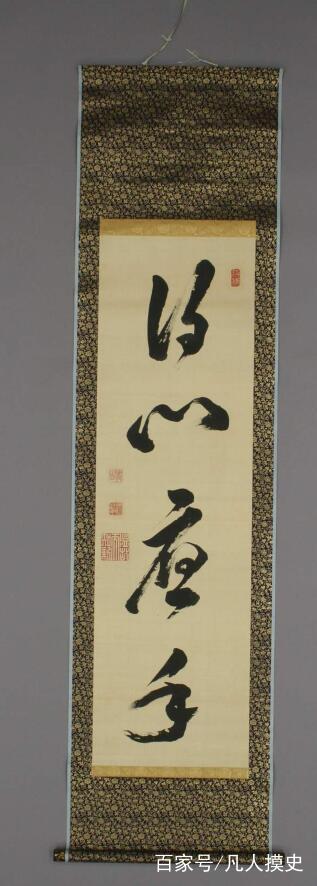 得心應手
百家号/凡人摸史